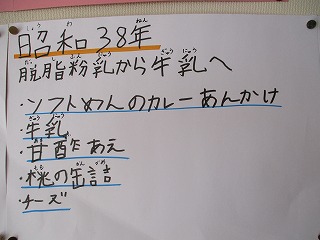 昭和38年
脱脂粉乳から牛乳へ
・ソフトめんのカレーあんかけ
・牛乳
・甘酢あえ
・桃の缶詰
・チーズ